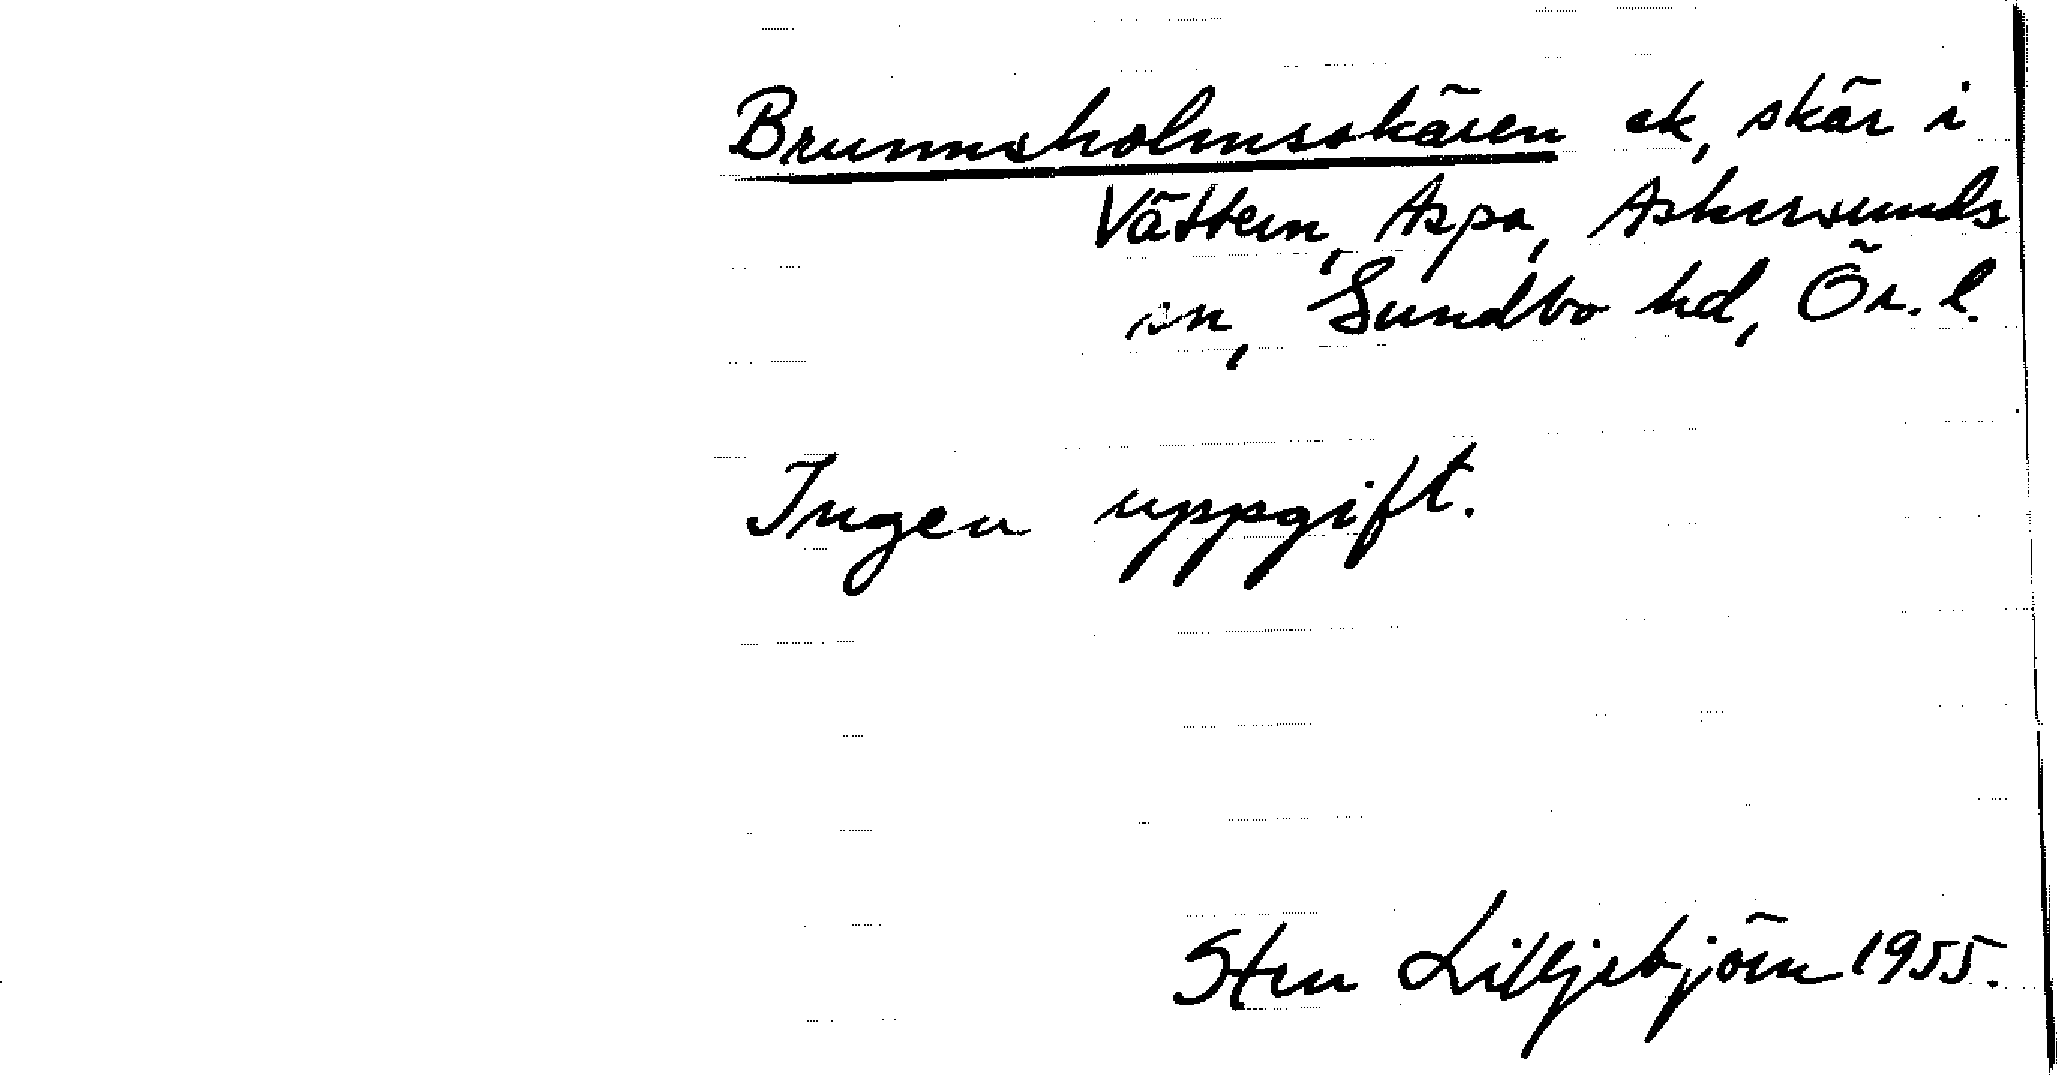 Brunnsholmsskären ek, skär i
Vättern, Aspa, Askersunds
sn, Sundbo hd, Ör. l.
Ingen uppgift.
Sten Lilljebjörn 1955.